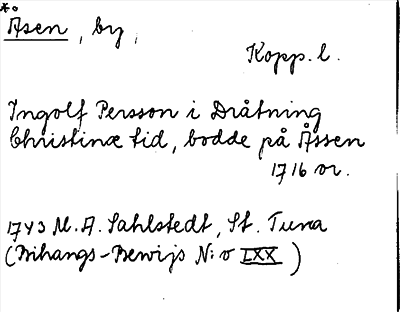 Åsen, by,
Kopp. l.
Ingolf Persson i Dråtning
Christinæ tid, bodde på Åssen
1716 or.
1743 M. A. Sahlstedt, St. Tuna
(Bihangs-Bewijs N:o LXX)